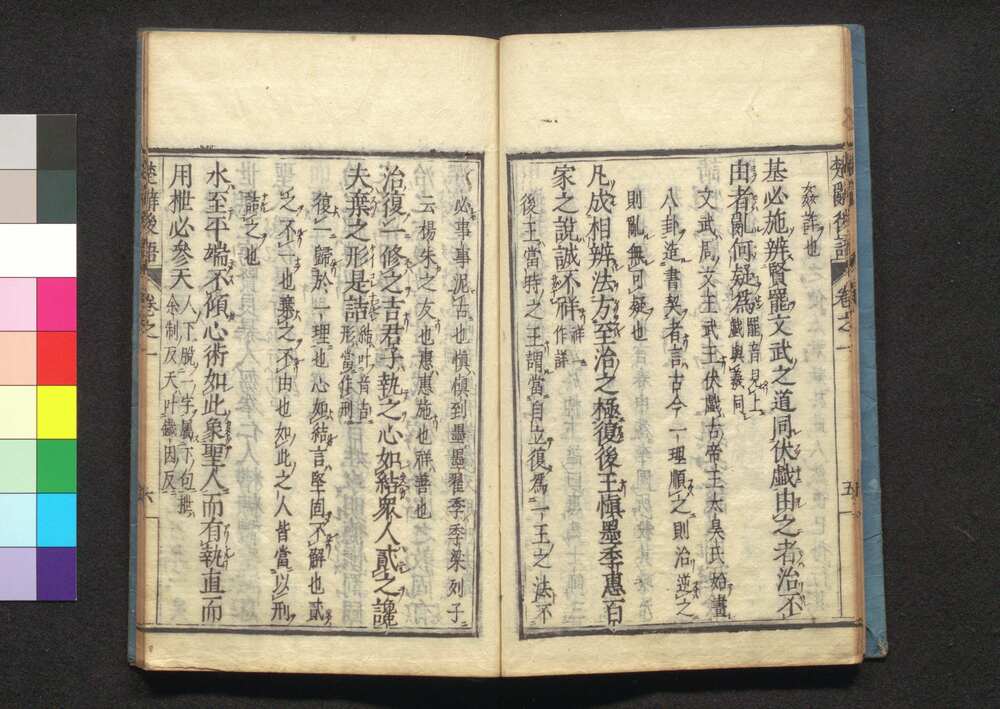 楚辭後語 卷之一 五
姦詐也
基必施辨賢罷文武之道同伏戯由之者治不
由者亂何疑爲罷音見上戯與羲同
文武周文王武王伏戯古帝王太昊氏始畫
八卦造書契者言古今一理順之則治逆之
則亂無可疑也
凡成相辨法方至治之極復後王愼墨季惠百
家之說誠不祥祥一作詳
後王當時之王謂當自立復爲一王之法不
必事事泥古也愼愼到墨墨翟季季梁列子
云楊朱之友也惠惠施也祥善也
治復一修之吉君子執之心如結衆人貳之讒
夫棄之形是詰結叶音吉形當作刑
復一歸於一理也心如結言堅固不解也貳
之不一也棄之不由也如此之人皆當以刑
詰之也
水至平端不傾心術如此象聖人而有執直而
用枻必參天人下脫一字屬下句枻余制反天叶鐵因反
楚辭後語 卷之一 六